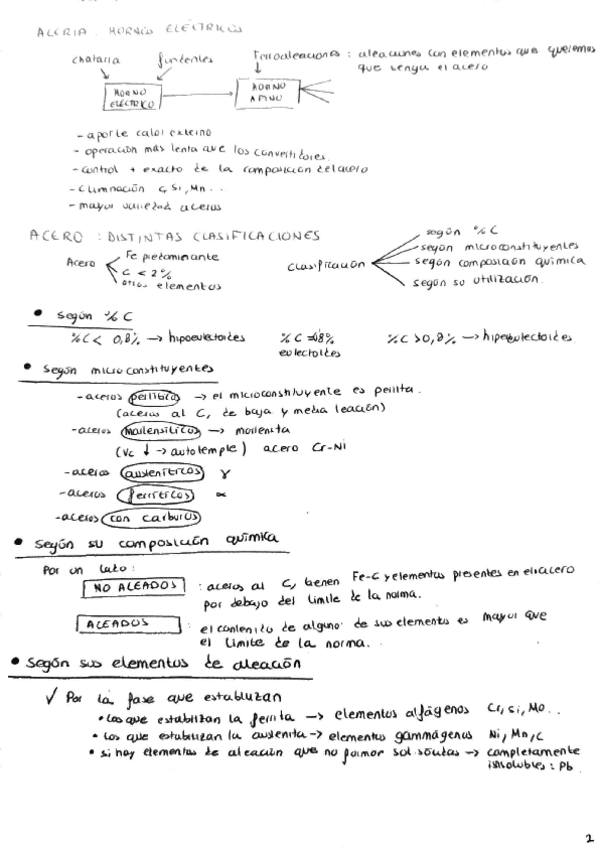 ACERIA : HORNOS ELÉCTRICOS
chatarra fundentes Ferroaleaciones : aleaciones con elementos que queremos
que tenga el acero
HORNO ELÉCTRICO
HORNO AFINO
- aporte calor externo
- operación más lenta que los convertidores.
- control + exacto de la composición del acero
- Eliminación C, Si, Mn...
- mayor variedad aceros
ACERO : DISTINTAS CLASIFICACIONES
Acero
Fe predominante
C < 2%
otros elementos
Clasificación
según %C
según microconstituyentes
según composición química
según su utilización.
• Según % C
%C < 0,8% → hipoeutectoides %C = 0,8% %C > 0,8% → hipereutectoides
eutectoides
• Según microconstituyentes
- aceros perlíticos → el microconstituyente es perlita.
(aceros al C, de baja y media leación)
- aceros martensíticos → martensita
(Vc ↓ → autotemple) acero Cr-Ni
- aceros austeníticos γ
- aceros ferríticos α
- aceros con carburos
• Según su composición química
Por un lado:
NO ALEADOS : aceros al C, tienen Fe-C y elementos presentes en el acero
por debajo del límite de la norma.
ALEADOS : el contenido de alguno de sus elementos es mayor que
el límite de la norma.
• Según sus elementos de aleación
√ Por la fase que estabilizan
• Los que estabilizan la ferrita → elementos alfágenos Cr, Si, Mo..
• Los que estabilizan la austenita → elementos gammágenos Ni, Mn, C
• si hay elementos de aleación que no forman sol. sólidas → completamente
insolubles : Pb
2